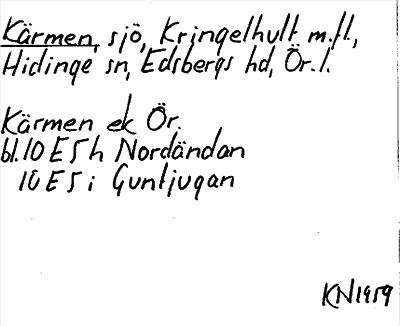 Kärmen, sjö, Kringelhult m.fl.,
Hidinge sn, Edsbergs hd, Ör. l.
Kärmen ek Ör.
bl. 10 E 5 h Nordändan
10 E 5 i Guntjugan
KN1959